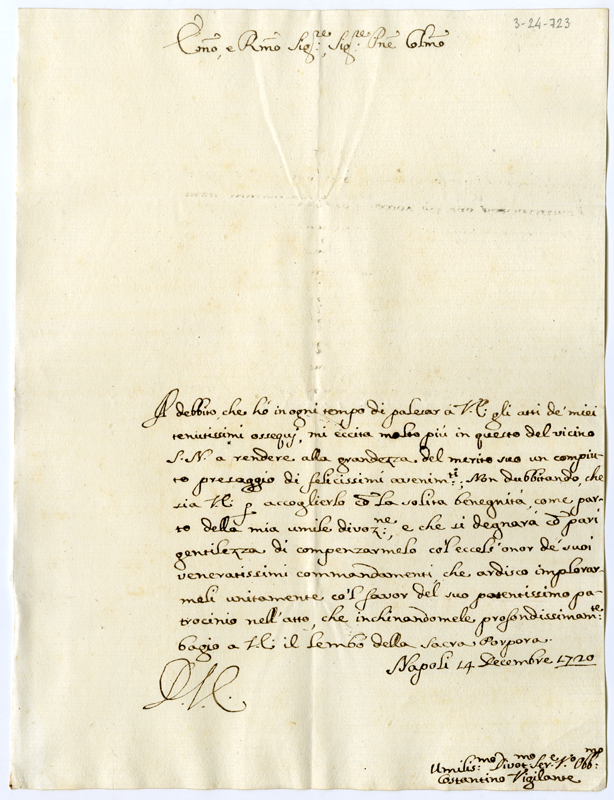 3-24-723
E.mo, e R.mo Sig.re, Sig.re P.ne Col.mo
Il debbito, che hó in ogni tempo di palesar á V.E. gli atti de' miei
tenutissimi ossequj, mi eccita molto piú in questo del vicino
S. N. a rendere alla grandezza del merito suo un compiu-
to presaggio di felicissimi avenim.ti. Non dubbitando, che
sia V.E. p accoglierlo cō la solita benegnitá, come par-
to della mia umile divoz.ne, e che si degnará cō pari
gentilezza di compenzarmelo co'l eccels' onor de' suoi
veneratissimi commandamenti che ardisco implorar-
meli unitamente co'l favor del suo potentissimo pa-
trocinio nell'atto, che inchinandomele profondissimam.te
bagio a V.E. il lembo della Sacra Porpora.
Napoli 14 Decembre 1720
D.V.E.
Umilis.mo Divot.mo Ser.e V.o Obb.mo
Costantino Vigilante